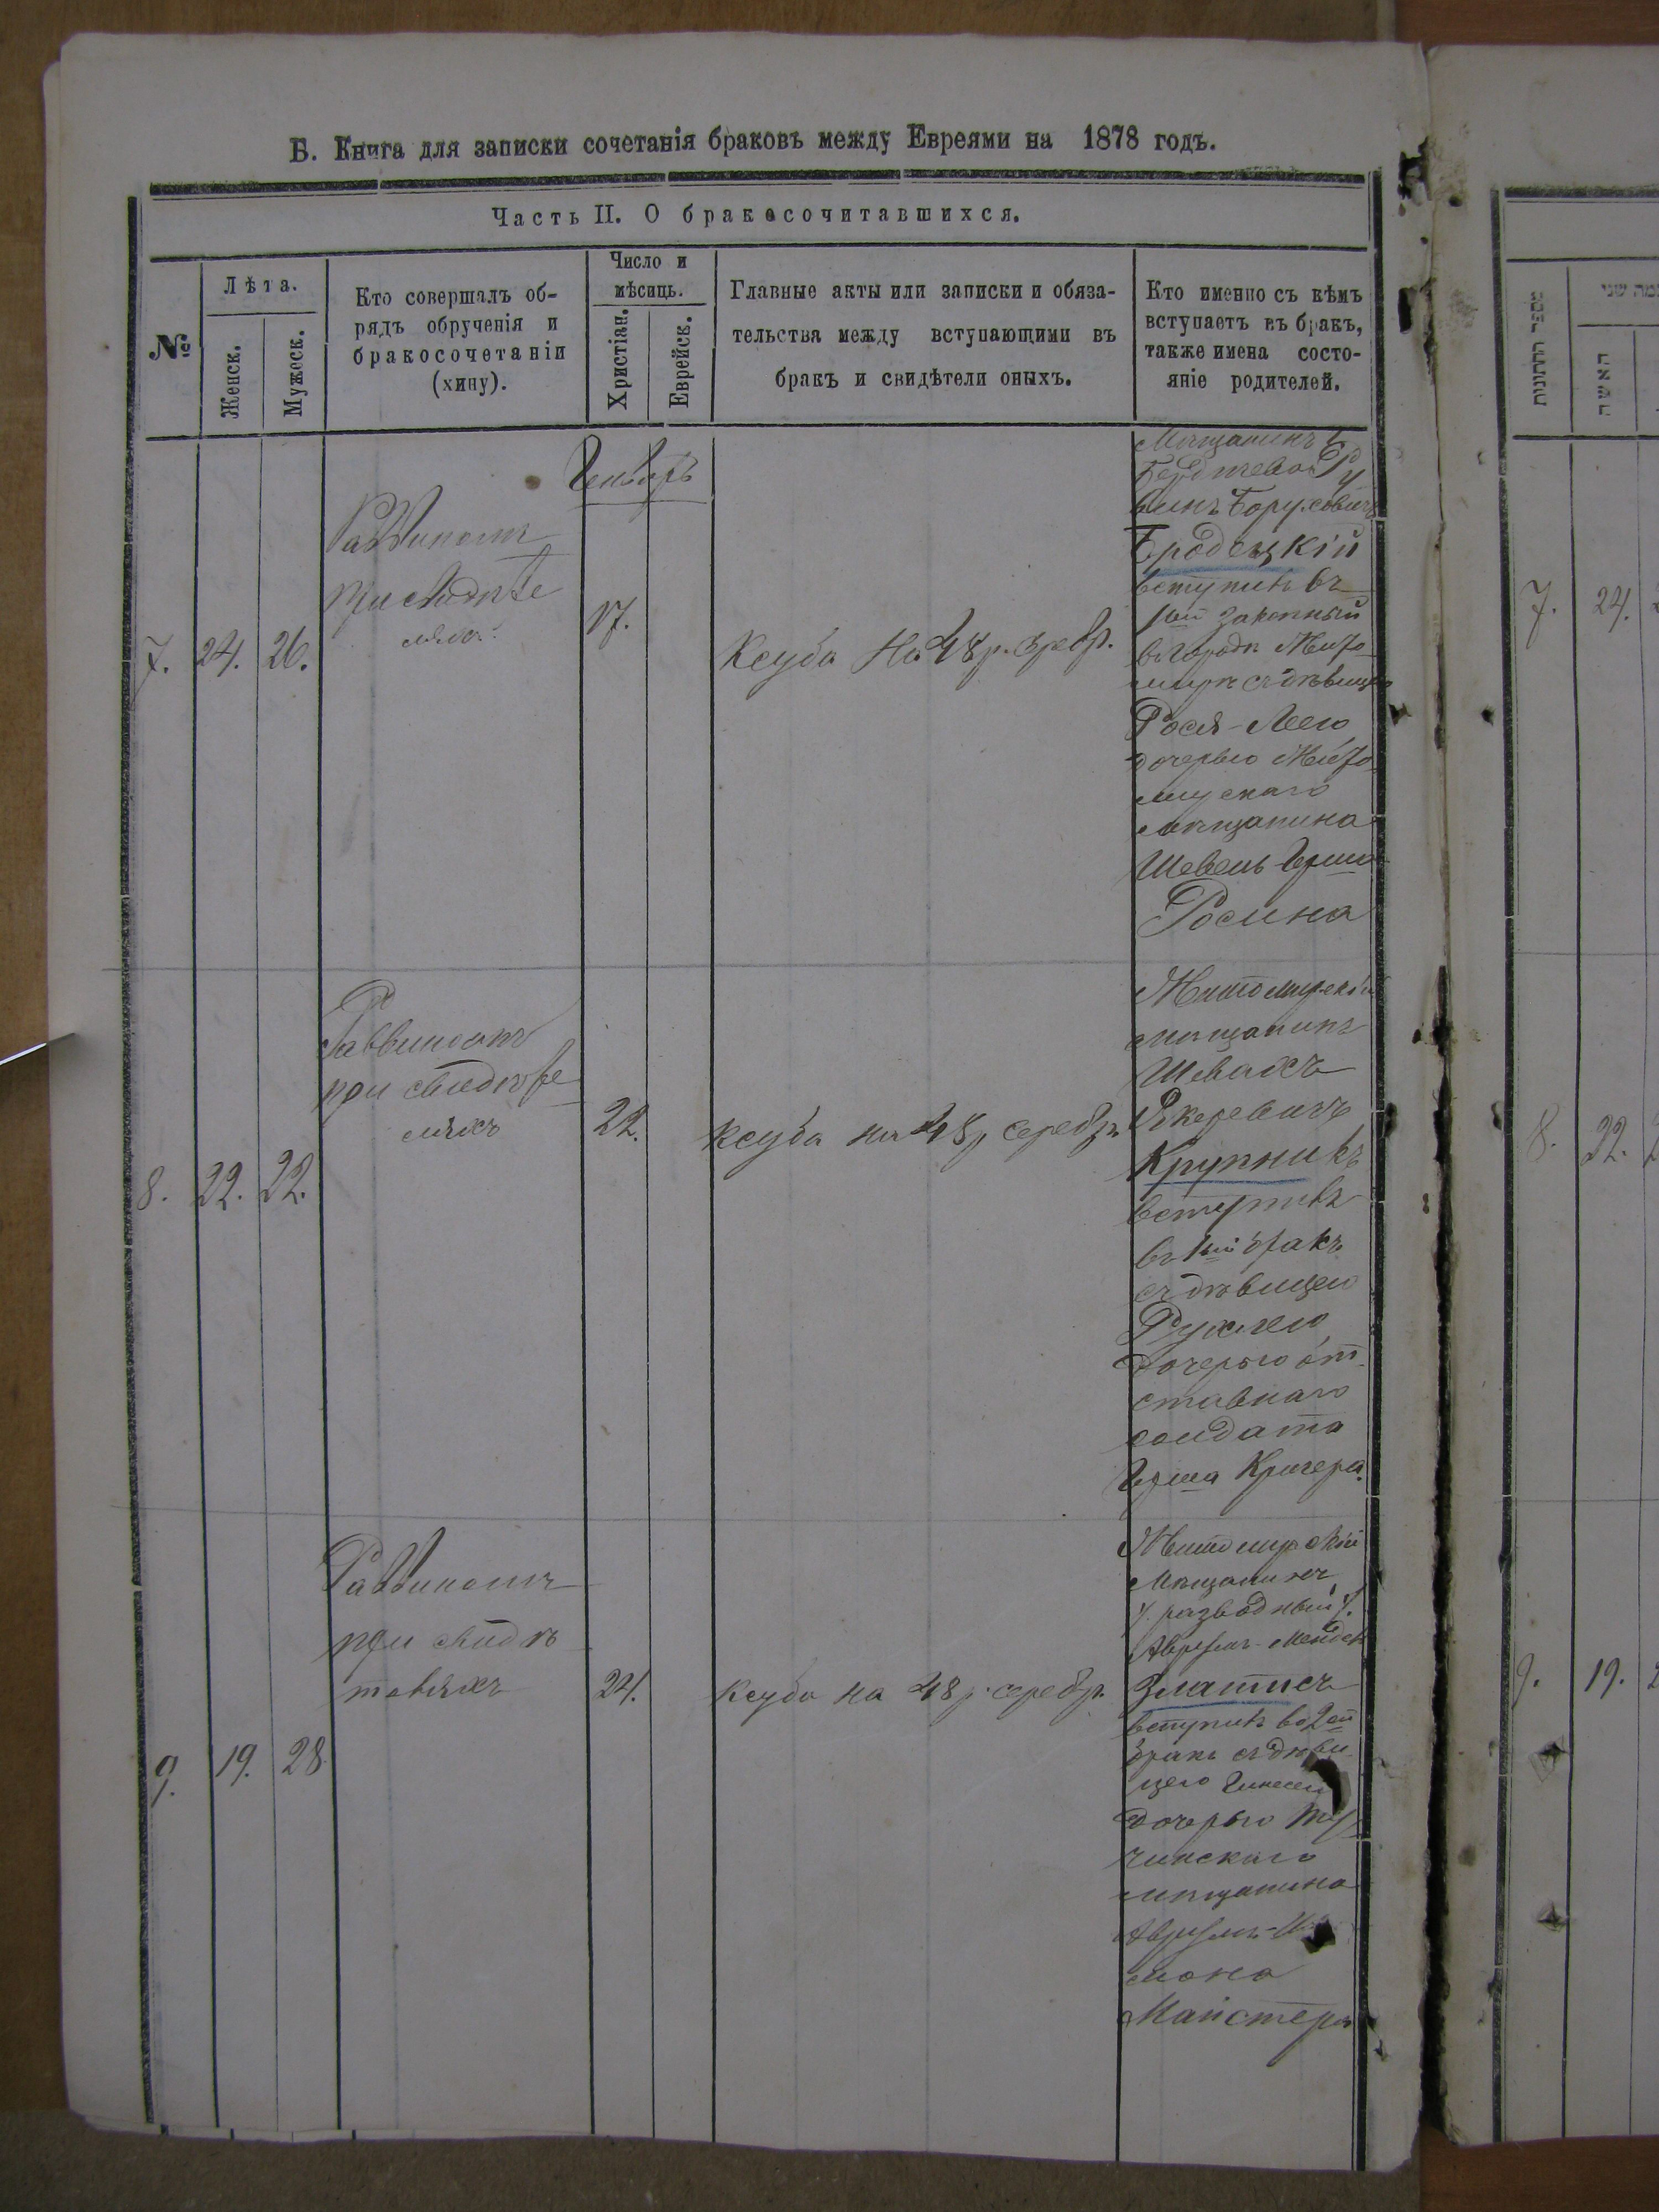 Б. Книга для записки сочетанія браковъ между Евреями на 1878 годъ.
Часть II. О бракосочитавшихся.
№
Лѣта.
Женск.
Мужеск.
Кто совершалъ об-
рядъ обрученія и
бракосочетанія
(хипу).
Число и
мѣсяць.
Христіан.
Еврейск.
Главные акты или записки и обяза-
тельства между вступающими въ
бракъ и свидѣтели оныхъ.
Кто именно съ кѣмъ
вступаетъ въ бракъ,
также имена состо-
яніе родителей.
7.
24.
26.
Раввинатъ
при свидѣте
ляхъ
17.
Ксуба на 48 р.
Мѣщанинъ
Ру
винъ Борухович
Бродецкій
вступилъ въ
1ый законный
въ городѣ Жито
мирѣ съ дѣвицею
Рося-Леею
дочерью Жито
мирскаго
мѣщанина
Росина
8.
22.
22.
Раввинатъ
при свидѣте
ляхъ
22.
Ксуба на 48 р серебр.
Житомирскій
мѣщанинъ
Шевахъ
Крупникъ
вступилъ
въ 1ый бракъ
съ дѣвицею
Рухлею
дочерью от
ставнаго
солдата
Герша
9.
19.
28
Раввинатъ
при свидѣ
теляхъ
24.
Ксуба на 48 р серебр.
Житомирскій
Мѣщанинъ
разводный
Аврумъ-Мендель
Златисъ
вступилъ во 2ой
бракъ съ дѣви
цею
дочерью
чинскаго
мѣщанина
Аврумъ
мона
Майстера
מספר החתונות
האשה
7.
24.
8.
22.
9.
19.